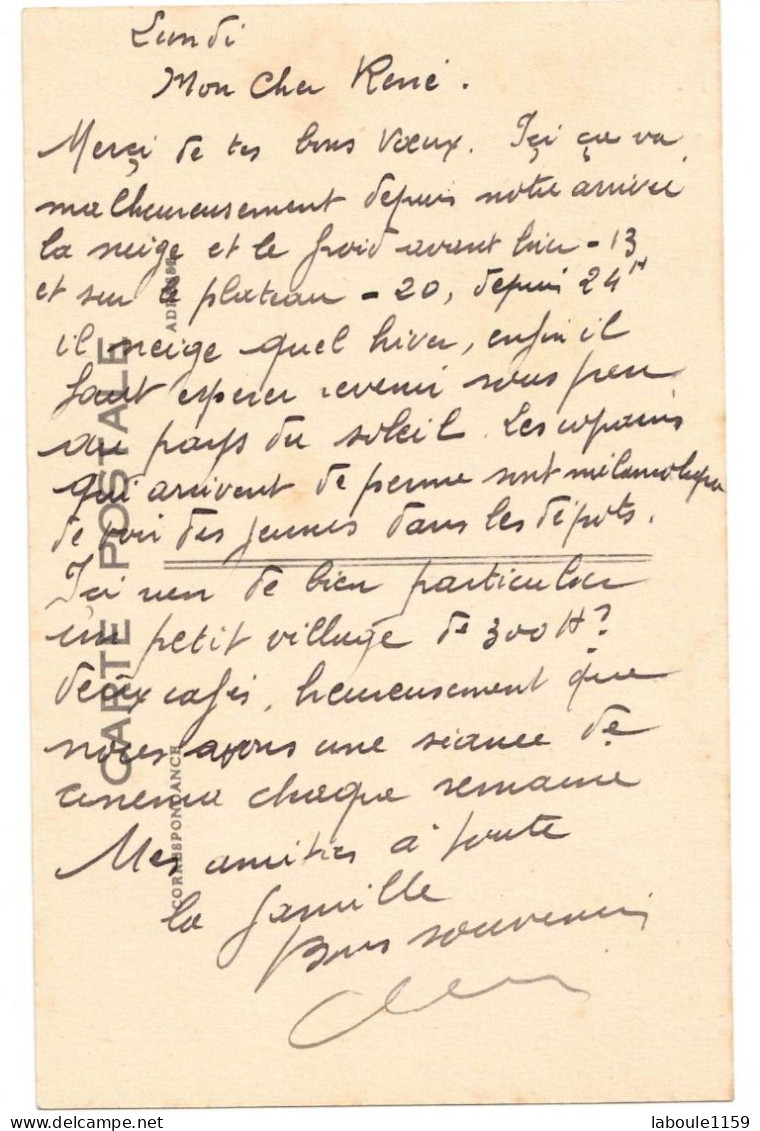 Lundi
Mon Cher René.
Merçi de tes bons Vœux. Içi ça va
malheureusement depuis notre arrivée
la neige et le froid avant hier - 13
et sur le plateau - 20, depuis 24 H
il neige quel hiver, enfin il
faut espérer revenir sous peu
au pays du soleil. Les copains
qui arrivent de perme sont mélancoliques
de voir des jeunes dans les dépôts.
Ici rien de bien particulier
un petit village de 300 H?
deux cafés, heureusement que
nous avons une séance de
cinema chaque semaine
Mes amitiés à toute
la famille
Bons souvenirs
CARTE POSTALE
ADRESSE
CORRESPONDANCE
Delcampe.net
laboule1159